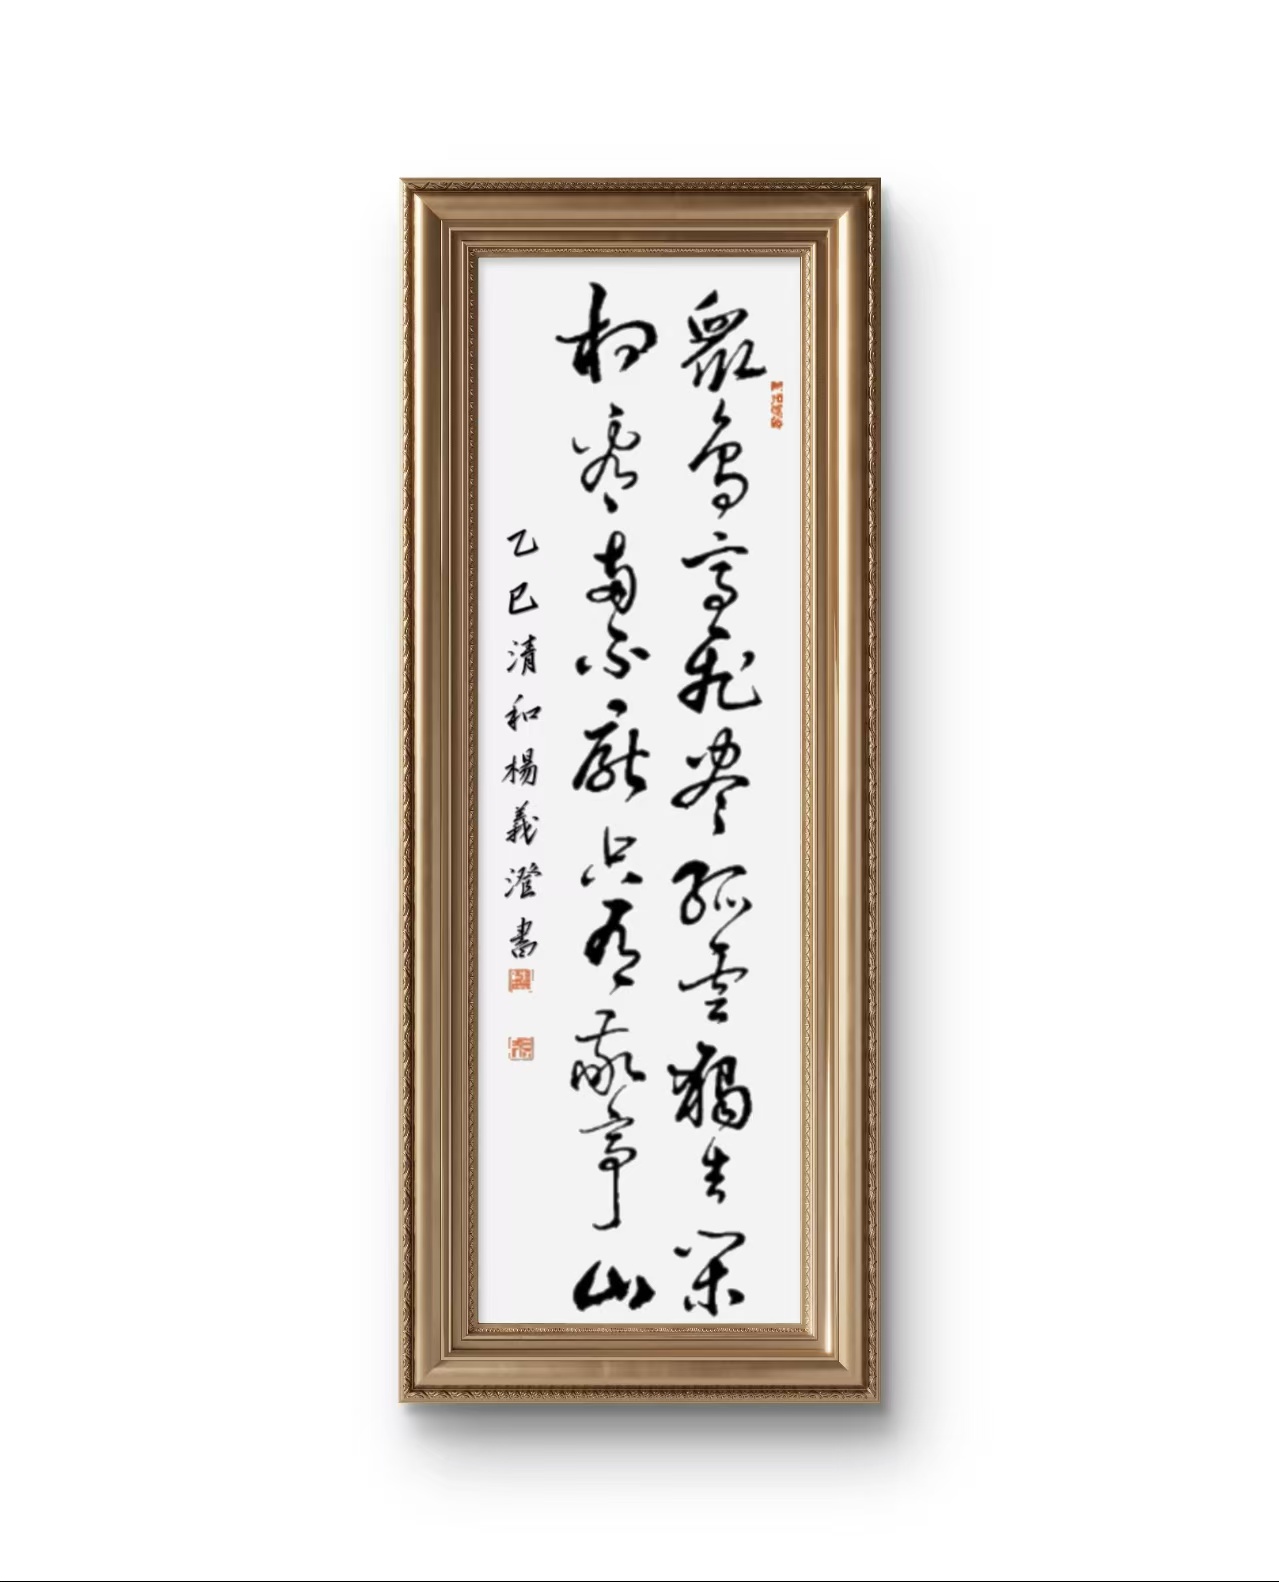 衆鳥高飛盡孤雲獨去閑
相看兩不厭只有敬亭山
乙巳清和楊義澄書